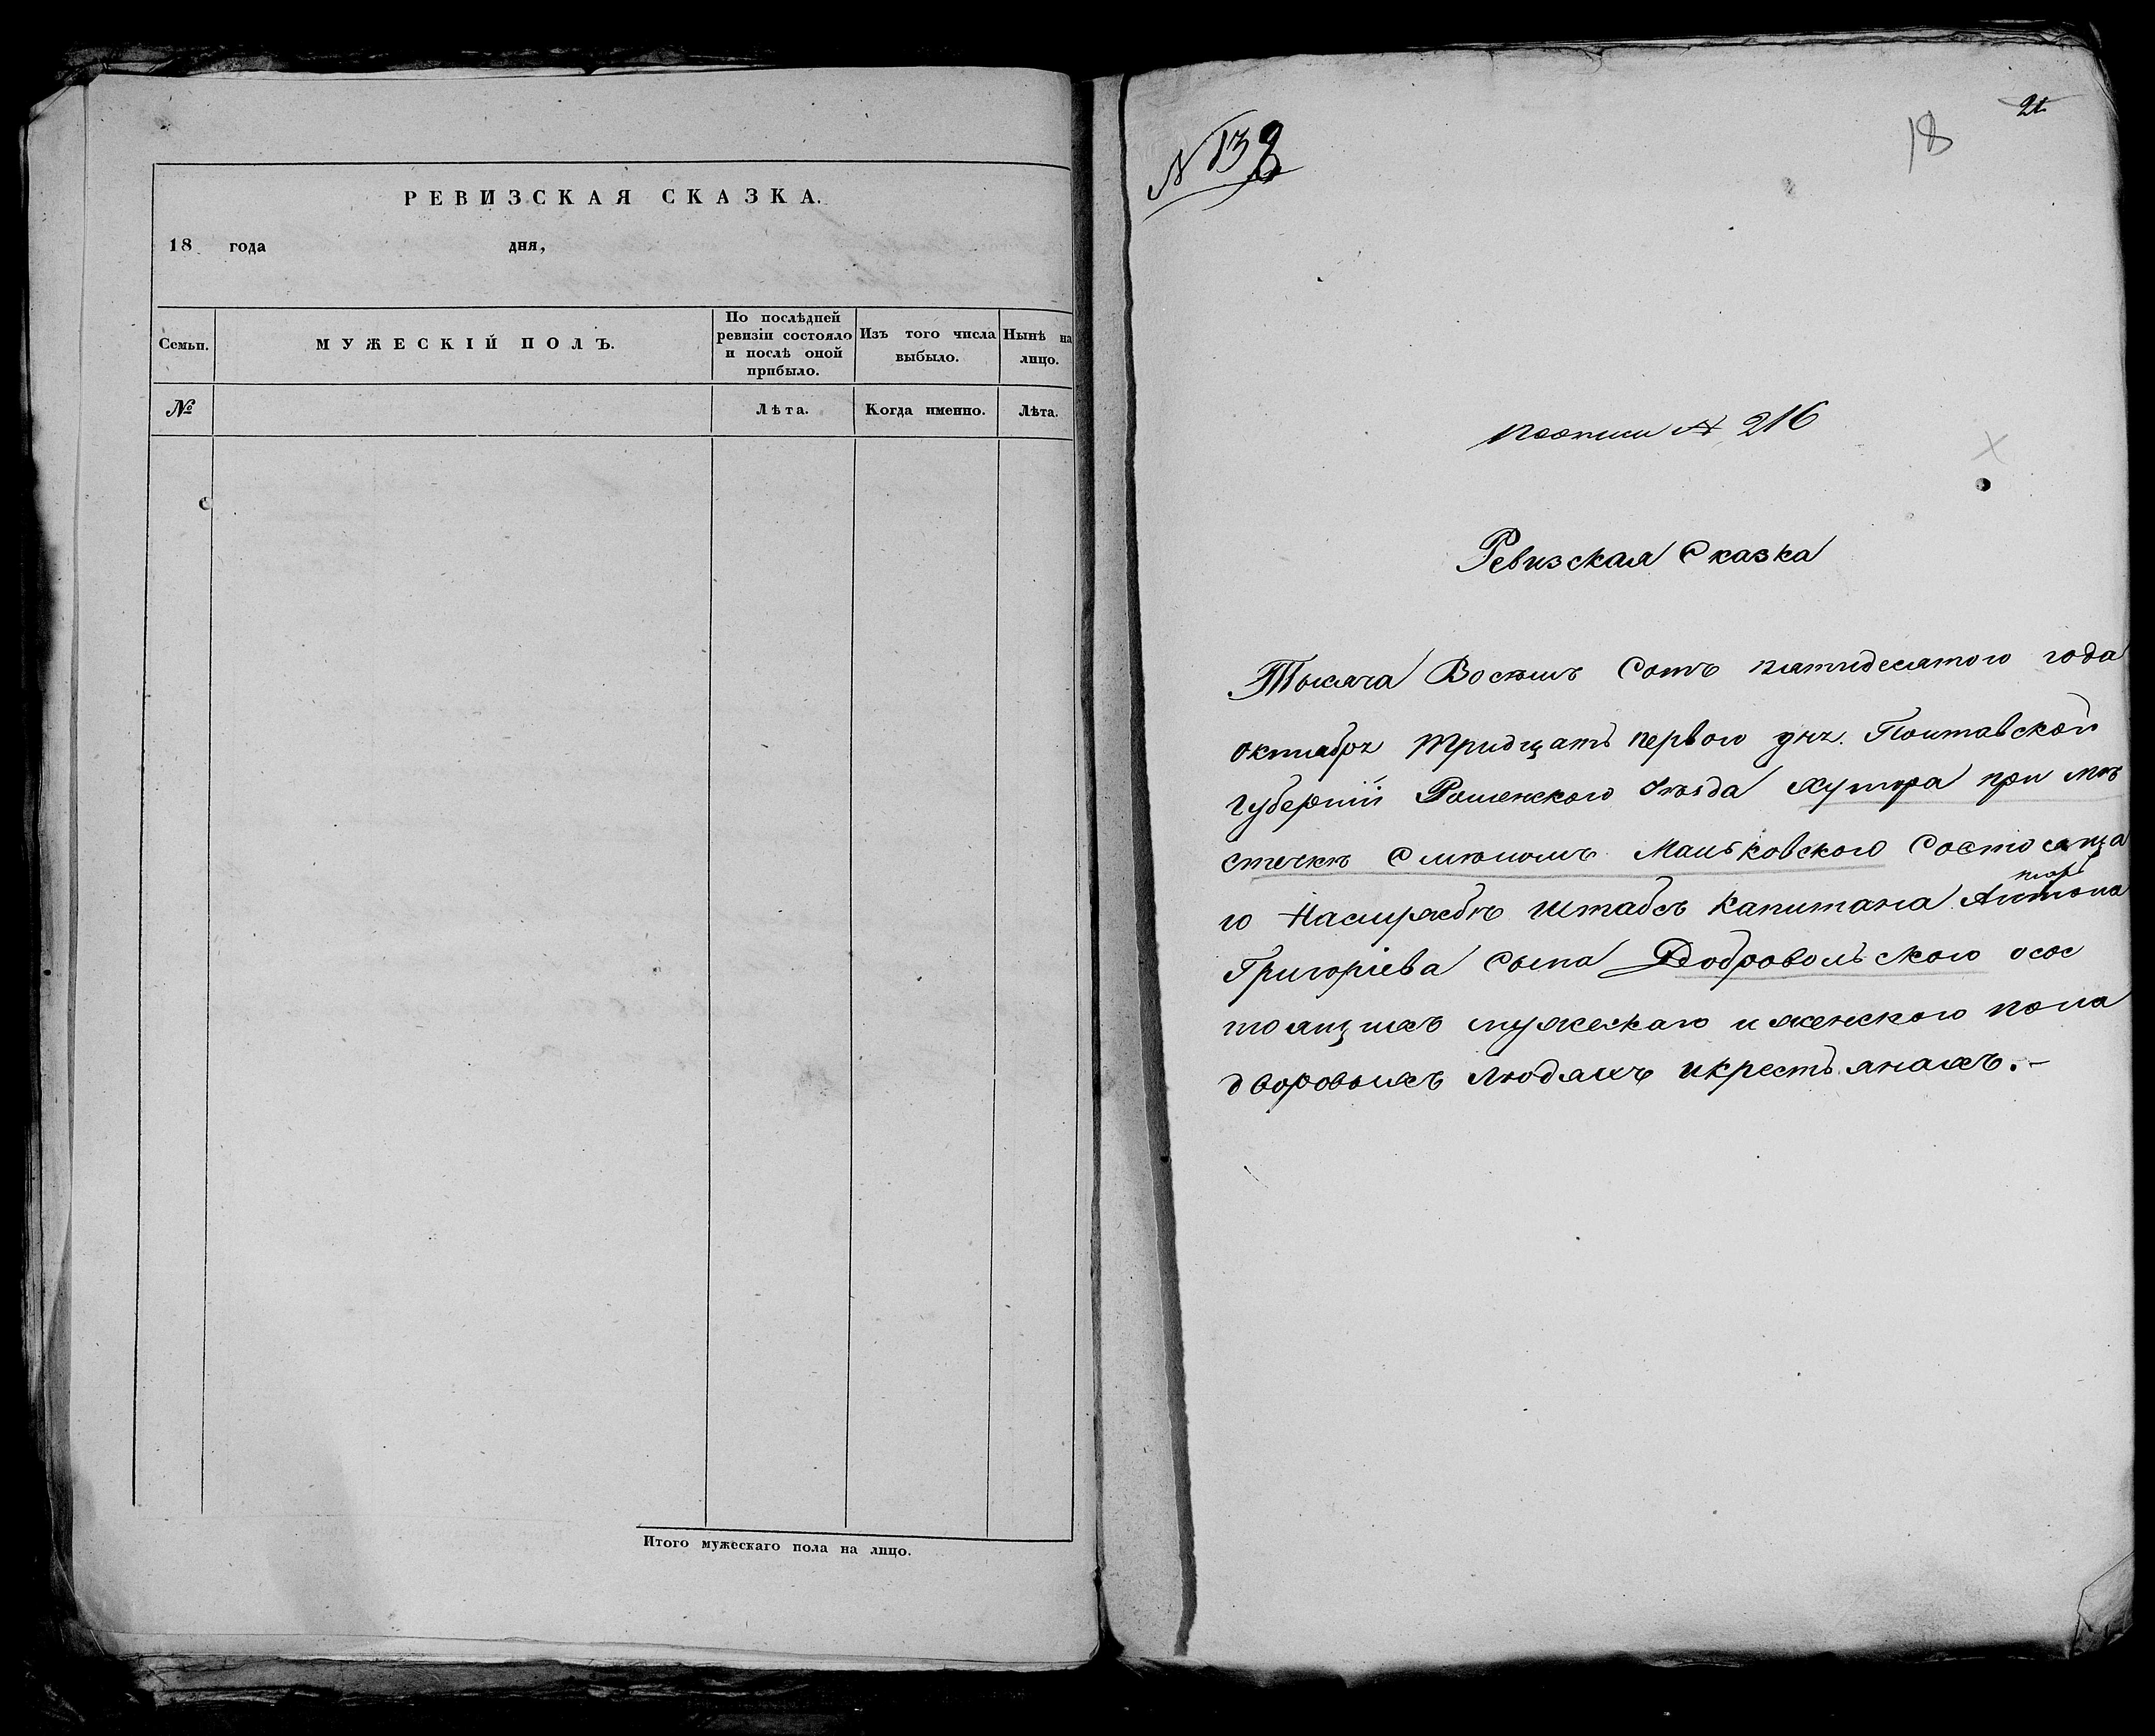 РЕВИЗСКАЯ СКАЗКА.
18 года дня,
Семьи.
МУЖЕСКІЙ ПОЛЪ.
По послѣдней
ревизіи состояло
и послѣ оной
прибыло.
Изъ того числа
выбыло.
Нынѣ на
лицо.
№
Лѣта.
Когда именно.
Лѣта.
Итого мужескаго пола на лицо.
21
18
N 132
поописи № 216
Ревизская Сказка
Тысяча Восемь Сотъ пятидесятого года
октября тридцать первого дня. Полтавской
губерніи Роменского уѣзда хутора при мѣ
стечкѣ Смѣломъ Маньковского Состояща
го Наслужбѣ Штабсъ Капитана Антона
Григоріева Сына Добровольского осос
тоящихъ мужескаго иженского пола
дворовыхъ людяхъ икрестьянахъ.-